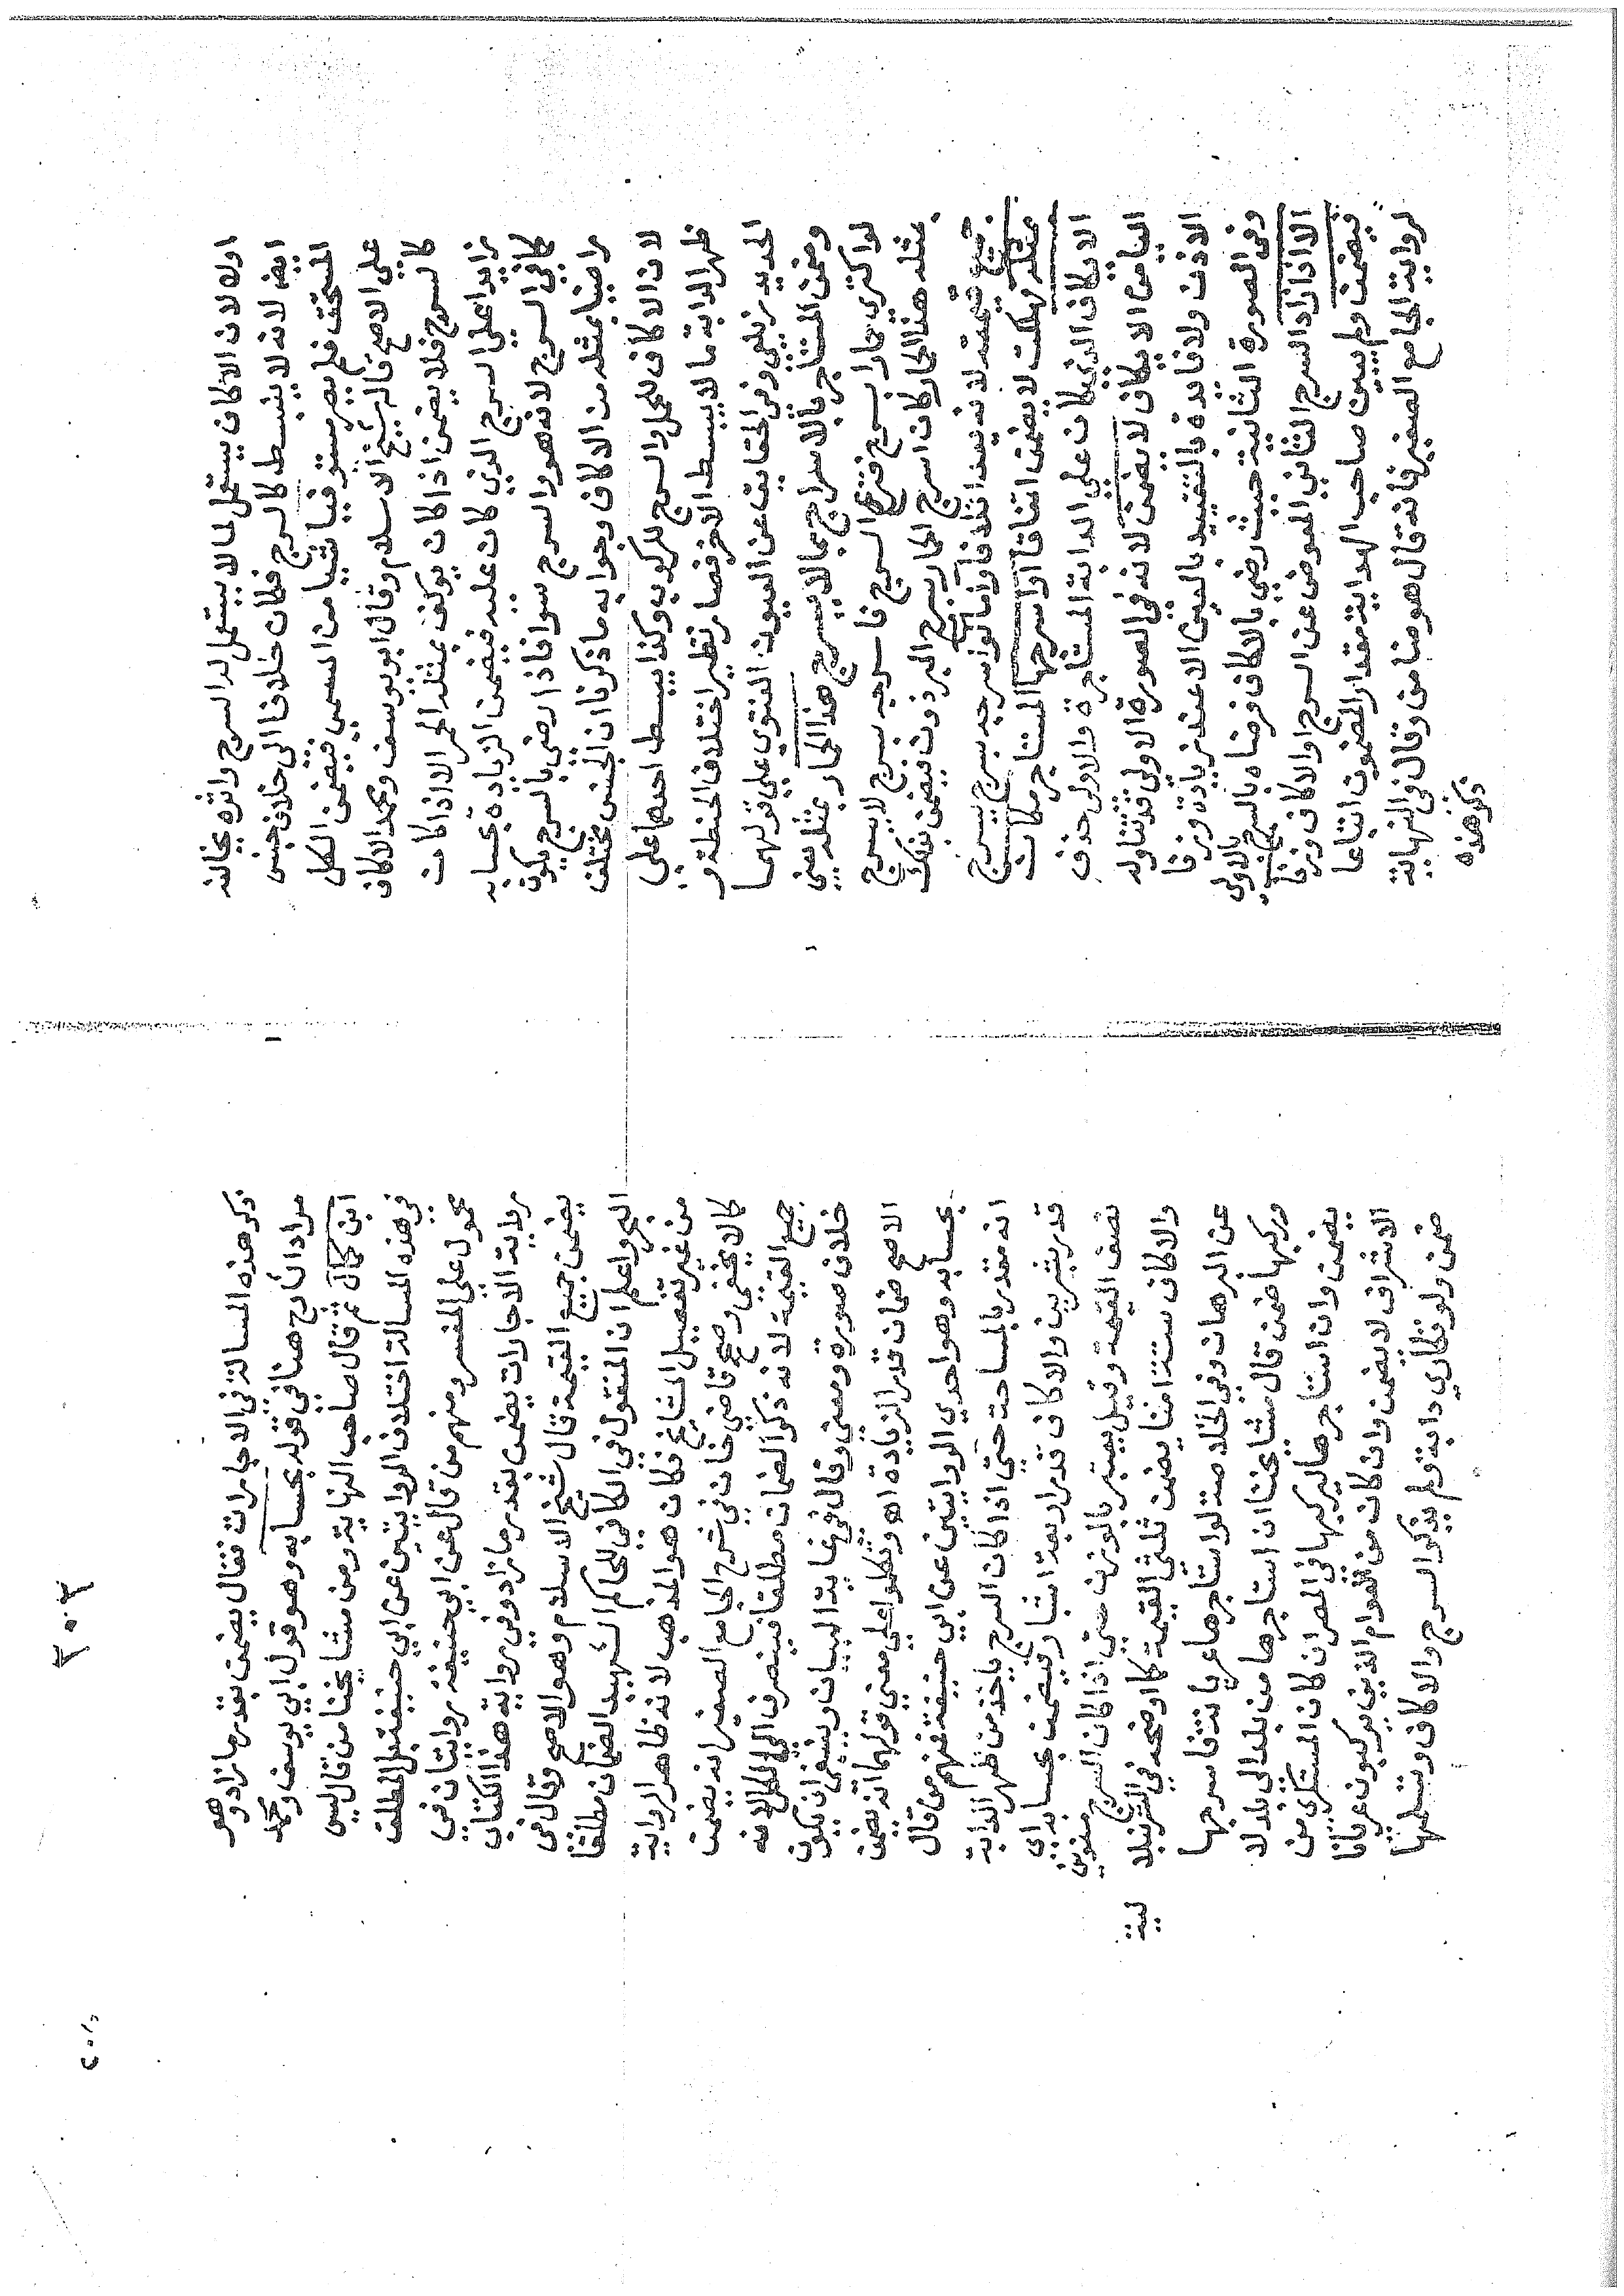 اوله لان الاكاف يستعمل لما لا يستعمل له السرج واثره يخالفه
ايضا لانه لا ينبسط كالسرج فكان خلافا الى خلاف جنس
المستحق فلم يصر مستوفيا شيا من المسمى فيضمن الكل
على الاصح قاله شيخ الاسلام وقال ابو يوسف ومحمد الاكاف
كالسرج فلا يضمن اذا كان يوكف بمثله الحمر الا اذا كان
زايدا على السرج الذي كان عليه فيضمن الزيادة بحسابه
كما في السرج لانه هو والسرج سوا فاذا رضي بالسرج يكون
راضيا بمثله من الاكاف وجوابه ما ذكرنا ان الجنس مختلف
لان الاكاف للحمل والسرج للركوب وكذا يبسط احدهما على
ظهر الدابة ما لا يبسط الاخر فصار نظير اختلاف الحنطة و
الحديد زيلعي وفي الحقايق عن العيون الفتوى على قولهما
وضمن المستاجر بالاسراج بما لا يسرج هذا الحمار بمثله يعني
لو اكترى حمارا بسرج فنزع السرج فاسرجه بسرج لا يسرج
بمثله هذا الحمار كان اسرج الحمار بسرج البرذون فيضمن بذلك
جميع قيمته لانه يعد اتلافا واما لو اسرجه بسرج يسرج
بمثله فهلكت لا يضمن اتفاقا او اسرجها المستاجر مكان
الايكاف الذي كان على الدابة المستاجرة والاولى حذف
اليا من الايكاف لا يضمن لانه في الصورة الاولى قد تناوله
الاذن ولا فايدة بالتقييد بالمعين الا عند زيادة وزنا
وفي الصورة الثانية حيث رضي بالاكاف فرضاه بالسرج بالاولى
الا اذا زاد السرج الثاني المعوض عن السرج او الاكاف وزنا
فيضمن ولم يبين صاحب الهداية مقدار المضمون اتباعا
لرواية الجامع الصغير فانه قال هو ضامن وقال في النهاية
ذكر هذه
ذكر هذه المسالة في الاجارات فقال يضمن بقدر ما زاد وهو
مراد الدرج هنا في قوله بحسابه وهو قول ابي يوسف ومحمد
ابن كمال ثم قال صاحب النهاية ومن مشايخنا من قال ليس
في هذه المسالة اختلاف الروايتين عن ابي حنيفة بل المطلق
محمول على المفسر ومنهم من قال عن ابي حنيفة روايتان في
رواية الاجارات يضمن بقدر ما زاد وفي رواية هذا الكتاب
يضمن جميع القيمة قال شيخ الاسلام وهو الاصح وقال في
البحر واعلم ان المنقول في الكافي للحاكم الشهيد الضمان مطلقا
من غير تفصيل المشايخ فكان هو المذهب لانه ظاهر الرواية
كما لا يخفى وصحح قاضي خان في شرح الجامع الصغير انه يضمن
جميع القيمة لانه ذكر الضمان مطلقا فينصرف الى الكل لانه
خلاف صورة ومعنى وقال في غاية البيان وينبغي ان يكون
الاصح ضمان قدر الزيادة اه وتكلموا على معنى قولهما انه يضمن
بحسابه وهو احدى الروايتين عن ابي حنيفة فمنهم من قال
انه مقدر بالمساحة حتى اذا كان السرج ياخذ من ظهر الدابة
قدر شبرين والاكاف قدر اربعة اشبار فيضمن بحسابه اي
نصف القيمة وقيل يعتبر بالوزن حتى اذا كان السرج منوين
والاكاف ستة امنا يضمن ثلثي القيمة كما اوضحه في الشرنبلا
لية
عن البرهان وفي الخلاصة لو استاجرها عريانة فاسرجها
وركبها ضمن قال مشايخنا ان استاجرها من بلد الى بلد لا
يضمن وان استاجرها ليركبها في المصر ان كان المستكري من
الاشراف لا يضمن وان كان من العوام الذين يركبون عريانا
ضمن ولو تكارى دابة ولم يذكر السرج والاكاف وتسلمها
٣٠٢